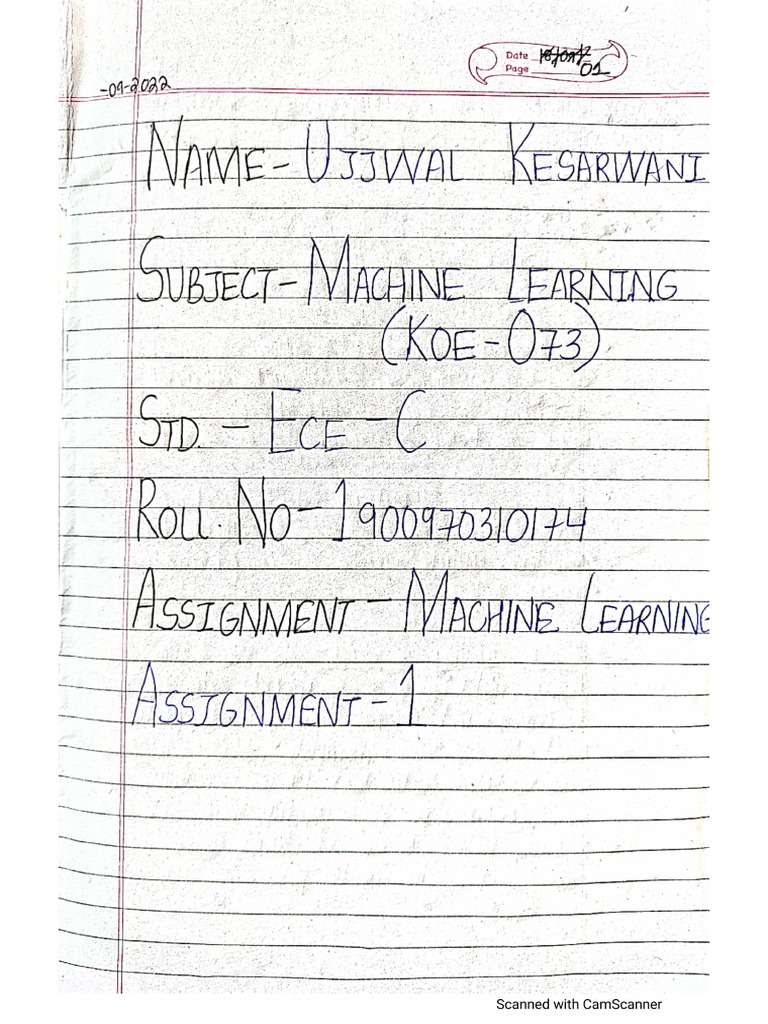 Date
Page 01
-09-2022
NAME - UJJWAL KESARWANI
SUBJECT - MACHINE LEARNING
(KOE - 073)
STD. - ECE - C
ROLL. NO - 1900970310174
ASSIGNMENT - MACHINE LEARNING
ASSIGNMENT - 1
Scanned with CamScanner